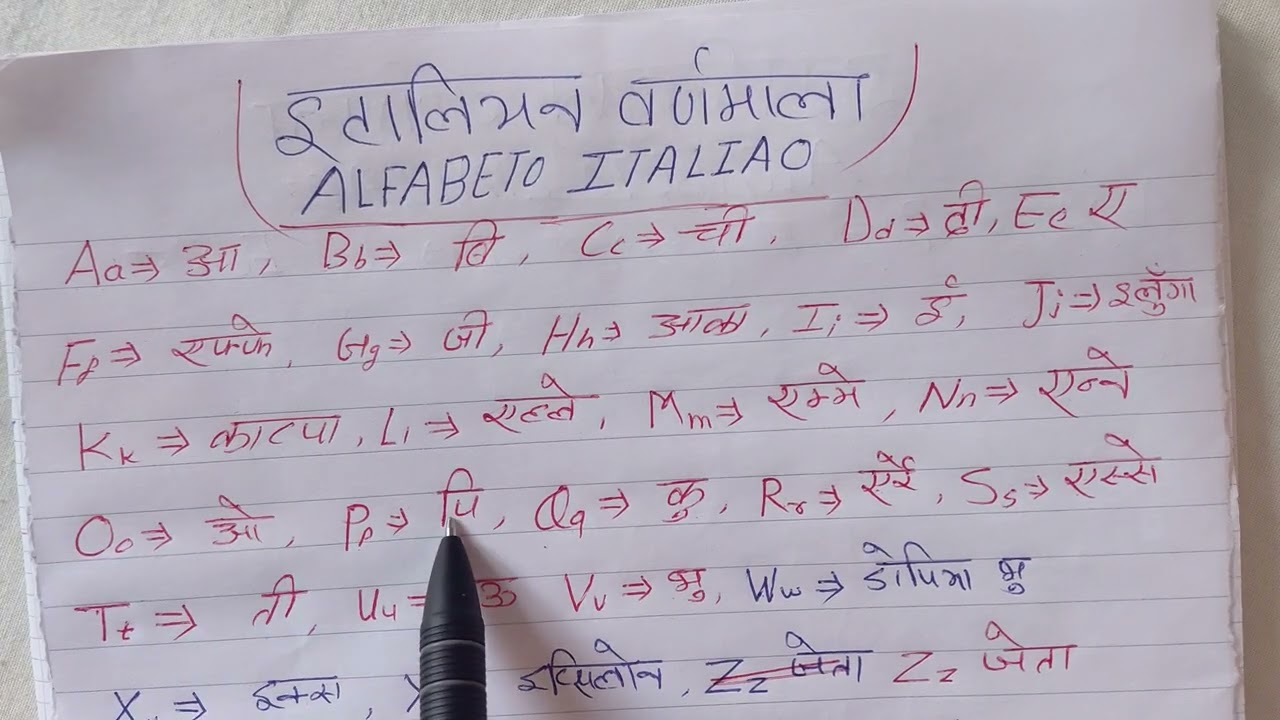 इतालियन वर्णमाला
ALFABETO ITALIAO
Aa⇒ आ, Bb⇒ बि, Cc⇒ ची, Dd⇒ दी, Ee ए
Ff⇒ एफ्फे, Gg⇒ जी, Hh⇒ आक्का, Ii⇒ ई, Jj⇒ इलुँगा
Kk⇒ काप्पा, Ll⇒ एल्ले, Mm⇒ एम्मे, Nn⇒ एन्ने
Oo⇒ ओ, Pp⇒ पि, Qq⇒ कु, Rr⇒ एर्रे, Ss⇒ एस्से
Tt⇒ ती, Uu= ऊ Vv⇒ भु, Ww⇒ डोपिया भु
X ⇒ इक्स, इप्सिलोन, Zz जेता Zz जेता